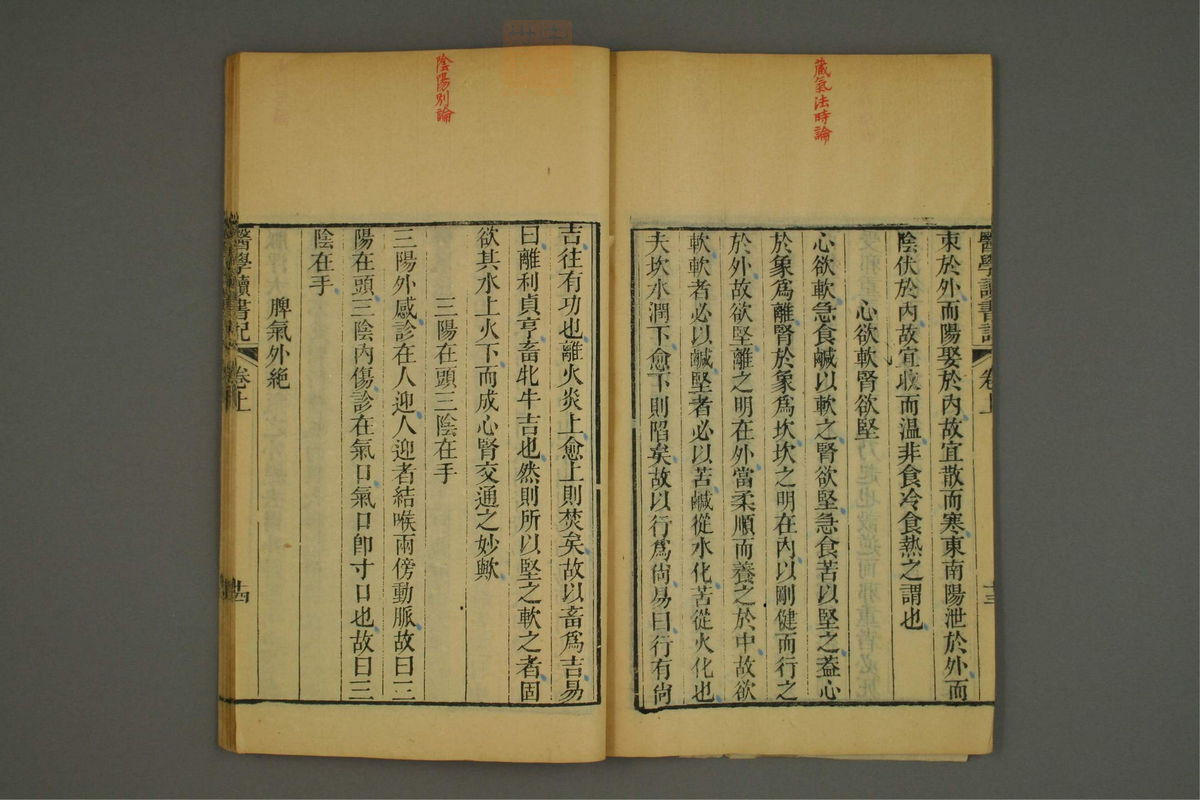 藏氣法時論
醫學讀書記 卷上 十三
束於外而陽娶於內故宜散而寒東南陽泄於外而
陰伏於內故宜收而温非食冷食熱之謂也
心欲軟腎欲堅
心欲軟急食鹹以軟之腎欲堅急食苦以堅之葢心
於象爲離腎於象爲坎坎之明在內以剛健而行之
於外故欲堅離之明在外當柔順而養之於中故欲
軟軟者必以鹹堅者必以苦鹹從水化苦從火化也
夫坎水潤下愈下則陷矣故以行爲尙易曰行有尙
陰陽別論
吉往有功也離火炎上愈上則焚矣故以畜爲吉易
曰離利貞亨畜牝牛吉也然則所以堅之軟之者固
欲其水上火下而成心腎交通之妙歟
三陽在頭三陰在手
三陽外感診在人迎人迎者結喉兩傍動脈故曰三
陽在頭三陰內傷診在氣口氣口卽寸口也故曰三
陰在手
脾氣外絕
醫學讀書記 卷上 十四